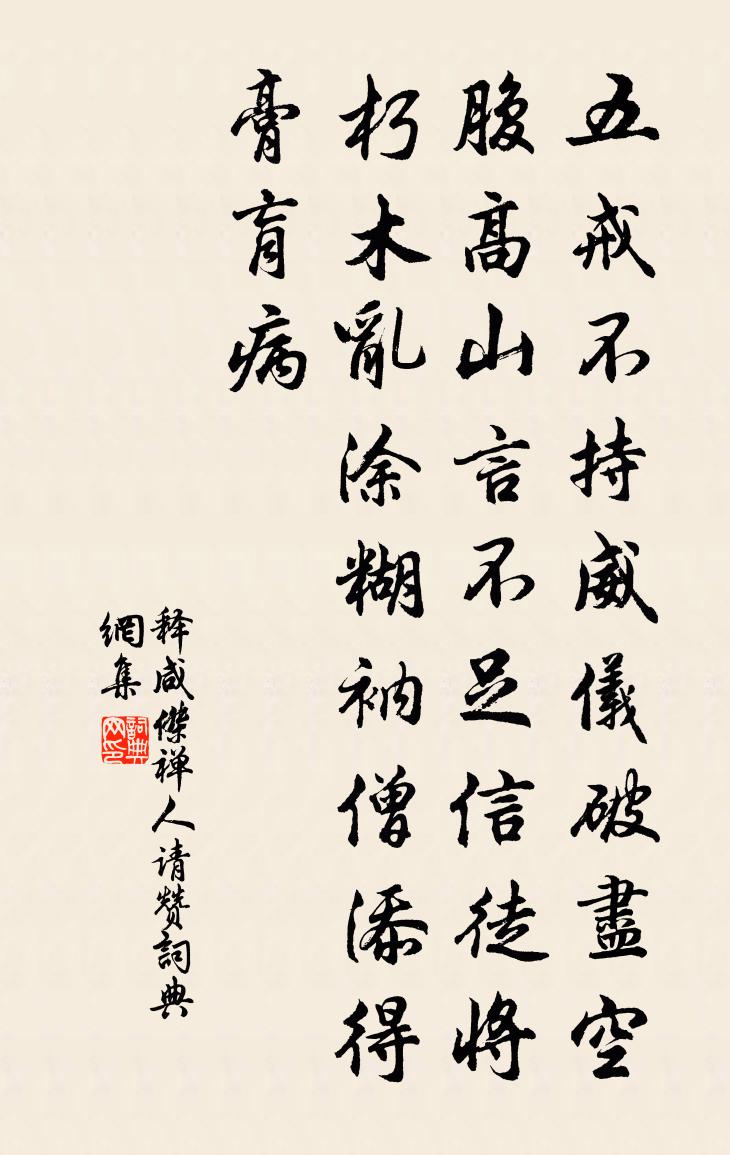 五戒不持威儀破盡空
腹高山言不足信徒將
朽木亂涂糊衲僧添得
膏肓病
释咸傑禅人请赞詞典
網集
詞典
网印